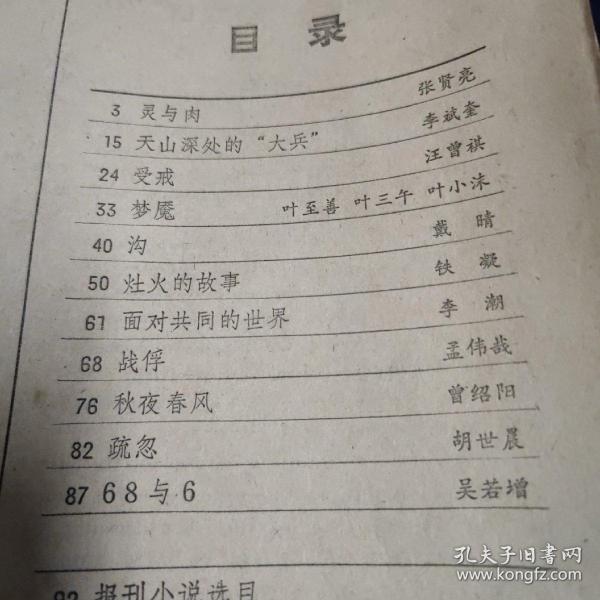 目 录
3 灵与肉 张贤亮
15 天山深处的“大兵” 李斌奎
24 受戒 汪曾祺
33 梦魇 叶至善 叶三午 叶小沫
40 沟 戴 晴
50 灶火的故事 铁 凝
61 面对共同的世界 李 潮
68 战俘 孟伟哉
76 秋夜春风 曾绍阳
82 疏忽 胡世晨
87 68与6 吴若增
92 报刊小说选目
孔夫子旧书网
www.kongfz.com